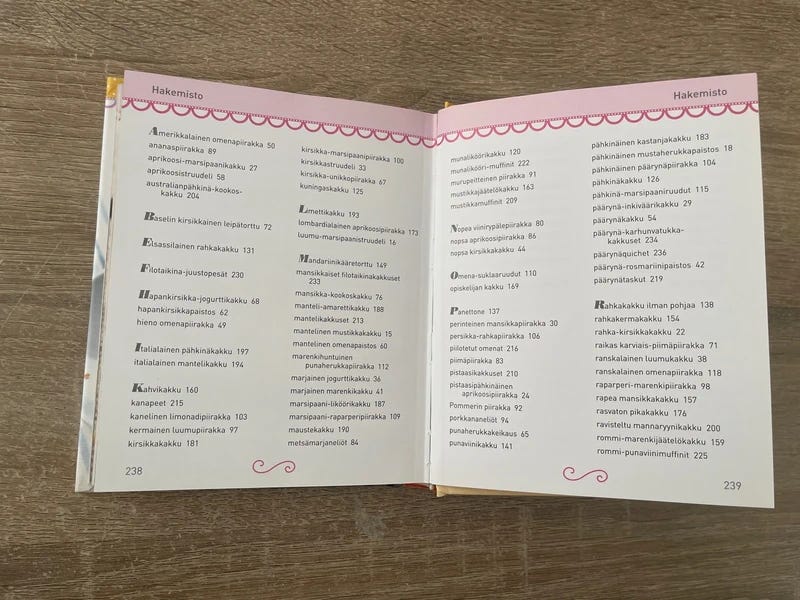 Hakemisto
Amerikkalainen omenapiirakka 50
ananaspiirakka 89
aprikoosi-marsipaanikakku 27
aprikoosistruudeli 58
australianpähkinä-kookos-
kakku 204
Baselin kirsikkainen leipätorttu 72
Elsassilainen rahkakakku 131
Filotaikina-juustopesät 230
Hapankirsikka-jogurttikakku 68
hapankirsikkapaistos 62
hieno omenapiirakka 49
Italialainen pähkinäkakku 197
italialainen mantelikakku 194
Kahvikakku 160
kanapeet 215
kanelinen limonadipiirakka 103
kermainen luumupiirakka 97
kirsikkakakku 181
kirsikka-marsipaanipiirakka 100
kirsikkastruudeli 33
kirsikka-unikkopiirakka 67
kuningaskakku 125
Limettikakku 193
lombardialainen aprikoosipiirakka 173
luumu-marsipaanistruudeli 16
Mandariinikääretorttu 149
mansikkaiset filotaikinakakkuset
233
mansikka-kookoskakku 76
manteli-amarettikakku 188
mantelikakkuset 213
mantelinen mustikkakakku 15
mantelinen omenapaistos 60
marenkihuntuinen
punaherukkapiirakka 112
marjainen jogurttikakku 36
marjainen marenkikakku 41
marsipaani-liköörikakku 187
marsipaani-raparperipiirakka 109
maustekakku 190
metsämarjaneliöt 84
238
Hakemisto
munaliköörikakku 120
munalikööri-muffinit 222
murupeitteinen piirakka 91
mustikkajäätelökakku 163
mustikkamuffinit 209
Nopea viinirypälepiirakka 80
nopsa aprikoosipiirakka 86
nopsa kirsikkakakku 44
Omena-suklaaruudut 110
opiskelijan kakku 169
Panettone 137
perinteinen mansikkapiirakka 30
persikka-rahkapiirakka 106
piilotetut omenat 216
piimäpiirakka 83
pistaasikakkuset 210
pistaasipähkinäinen
aprikoosipiirakka 24
Pommerin piirakka 92
porkkananeliöt 94
punaherukkakeikaus 65
punaviinikakku 141
pähkinäinen kastanjakakku 183
pähkinäinen mustaherukkapaistos 18
pähkinäinen päärynäpiirakka 104
pähkinäkakku 126
pähkinä-marsipaaniruudut 115
päärynä-inkiväärikakku 29
päärynäkakku 54
päärynä-karhunvatukka-
kakkuset 234
päärynäquichet 236
päärynä-rosmariinipaistos 42
päärynätaskut 219
Rahkakakku ilman pohjaa 138
rahkakermakakku 154
rahka-kirsikkakakku 22
raikas karviais-piimäpiirakka 71
ranskalainen luumukakku 38
ranskalainen omenapiirakka 118
raparperi-marenkipiirakka 98
rapea mansikkakakku 157
rasvaton pikakakku 176
ravisteltu mannaryynikakku 200
rommi-marenkijäätelökakku 159
rommi-punaviinimuffinit 225
239